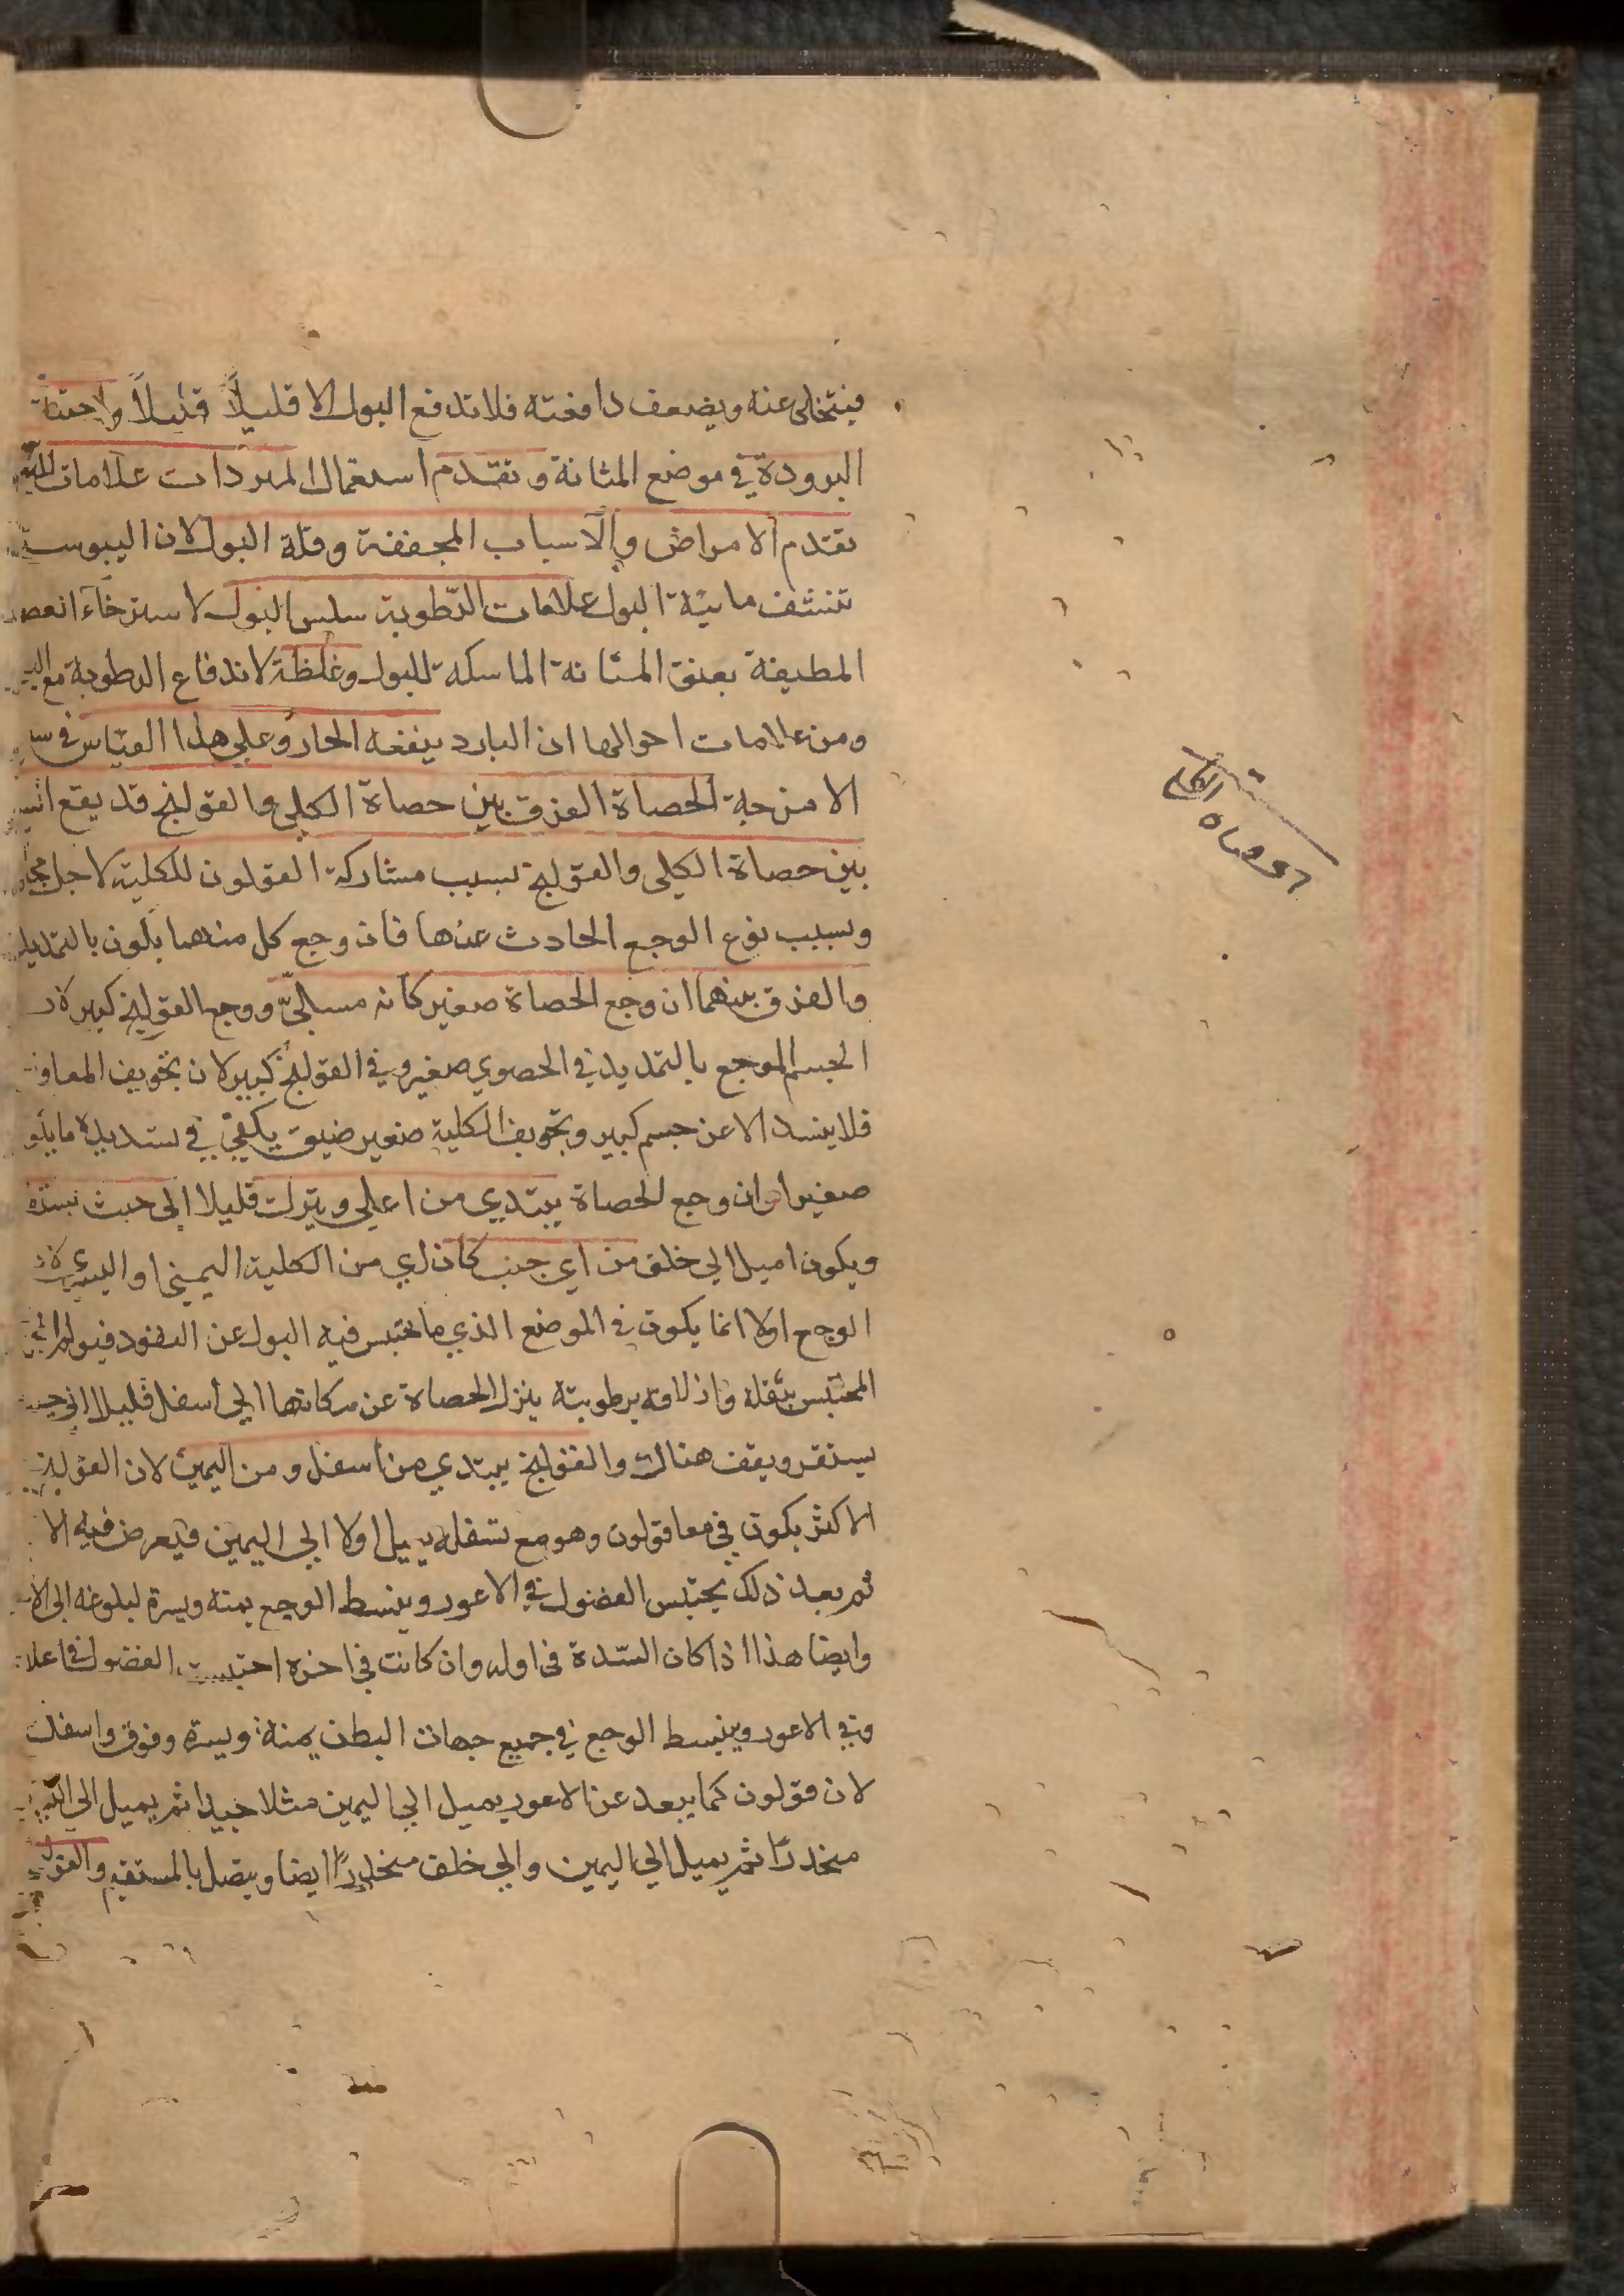 فيتخلى عنه ويضعف دافعته فلا تدفع البول الا قليلاً قليلاً
البرودة في موضع المثانة وتقدم استعمال المبردات علامات
تقدم الامراض والاسباب المجففة وقلة البول لان اليبوسة
تنشف مائية البول علامات الرطوبة سلس البول لاسترخاء
المطيفة بعنق المثانة الماسكة للبول وغلظه لاندفاع الرطوبة مع
ومن علامات احوالها ان البارد ينفعه الحار وعلى هذا القياس في
الامزجة الحصاة الفرق بين حصاة الكلى والقولنج قد يقع
بين حصاة الكلى والقولنج بسبب مشاركة القولون للكلية لاجل
وبسبب نوع الوجع الحادث عنها فان وجع كل منهما يكون بالتمديد
والفرق بينهما ان وجع الحصاة صغير كانه مسلي ووجع القولنج كبير
الجسم الموجع بالتمديد في الحصوي صغير وفي القولنج كبير لان تجويف المعا
فلا ينسد الا عن جسم كبير وتجويف الكلية صغير ضيق يكفي في تسديده ما
صغيرا وان وجع الحصاة يبتدي من اعلى وينزل قليلا الى حيث
ويكون اميل الى خلف من اي جنب كان اي من الكلية اليمنى او اليسرى
الوجع اولا انما يكون في الموضع الذي ما يحتبس فيه البول عن النفوذ
المحتبس بثقله وازلاقه برطوبته ينزل الحصاة عن مكانها الى أسفل قليلا الى
يستقر ويقف هناك والقولنج يبتدي من أسفل ومن اليمين لان القولنج
الاكثر يكون في معا قولون وهو مع تسفله يميل اولا الى اليمين فيعرض فيه الا
ثم بعد ذلك يحتبس الفضول في الاعور وينبسط الوجع يمنه ويسرة لبلوغه الى
وايضا هذا اذا كان السّدة في اوله وان كانت في اخره احتبست الفضول في
وفي الاعور وينبسط الوجع في جميع جهات البطن يمنة ويسرة وفوق واسفل
لان قولون كما يبعد عن الاعور يميل الى اليمين مثلا جيدا ثم يميل الى
منحدرًا ثم يميل الى اليمين والى خلف منحدرًا ايضا ويتصل بالمستقيم
حصاة الكلى